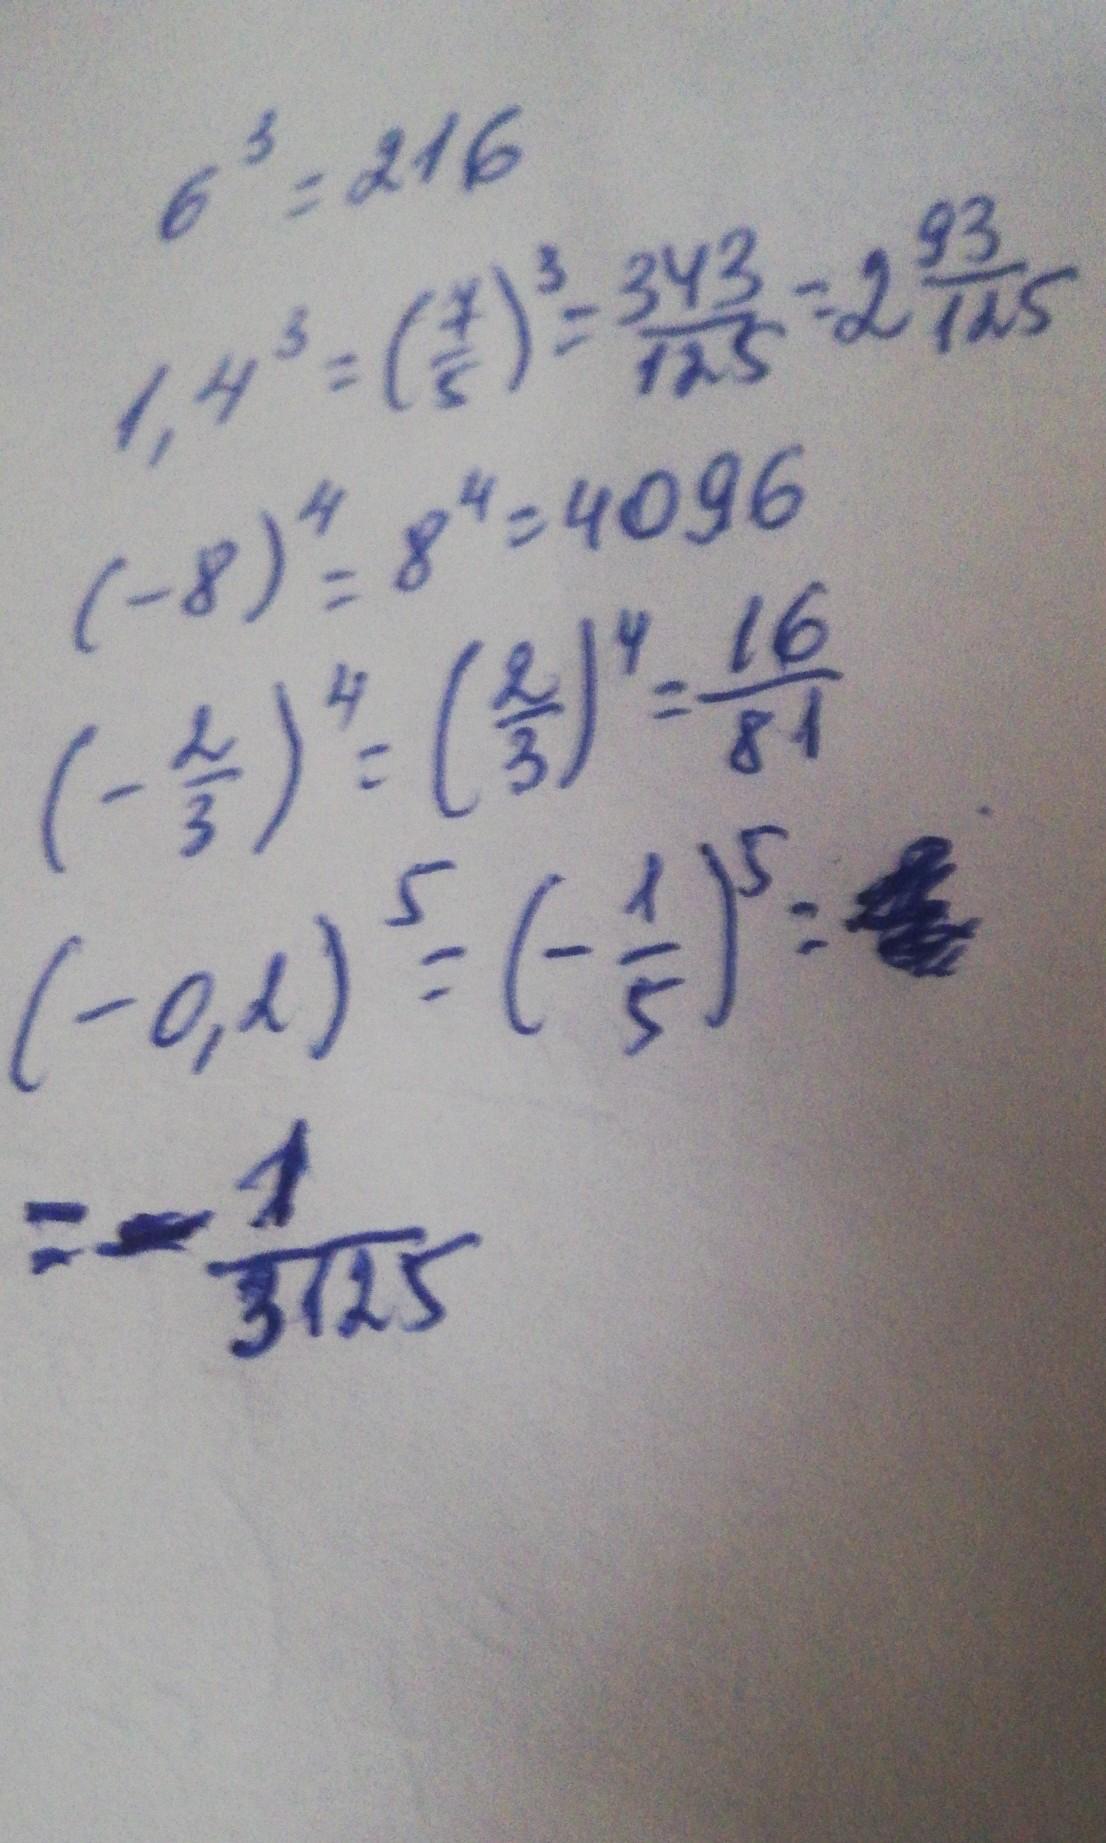 6³ = 216
1,4³ = (7/5)³ = 343/125 = 2 93/125
(-8)⁴ = 8⁴ = 4096
(-2/3)⁴ = (2/3)⁴ = 16/81
(-0,2)⁵ = (-1/5)⁵ =
= -1/3125